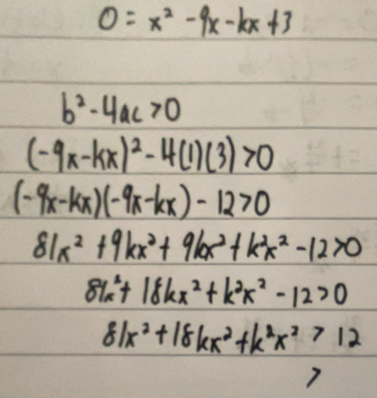 0 = x² - 9x - kx + 3
b² - 4ac > 0
(-9x - kx)² - 4(1)(3) > 0
(-9x - kx)(-9x - kx) - 12 > 0
81x² + 9kx² + 9kx² + k²x² - 12 > 0
81x² + 18kx² + k²x² - 12 > 0
81x² + 18kx² + k²x² > 12
>